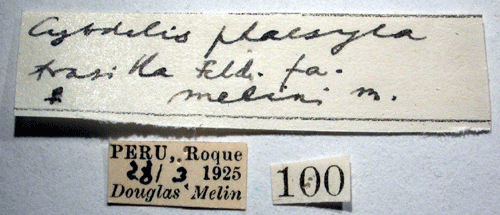 Cybdelis phaesyla
trasilla Feld. fa.
melini m.
PERU, Roque
28/3 1925
Douglas Melin
100